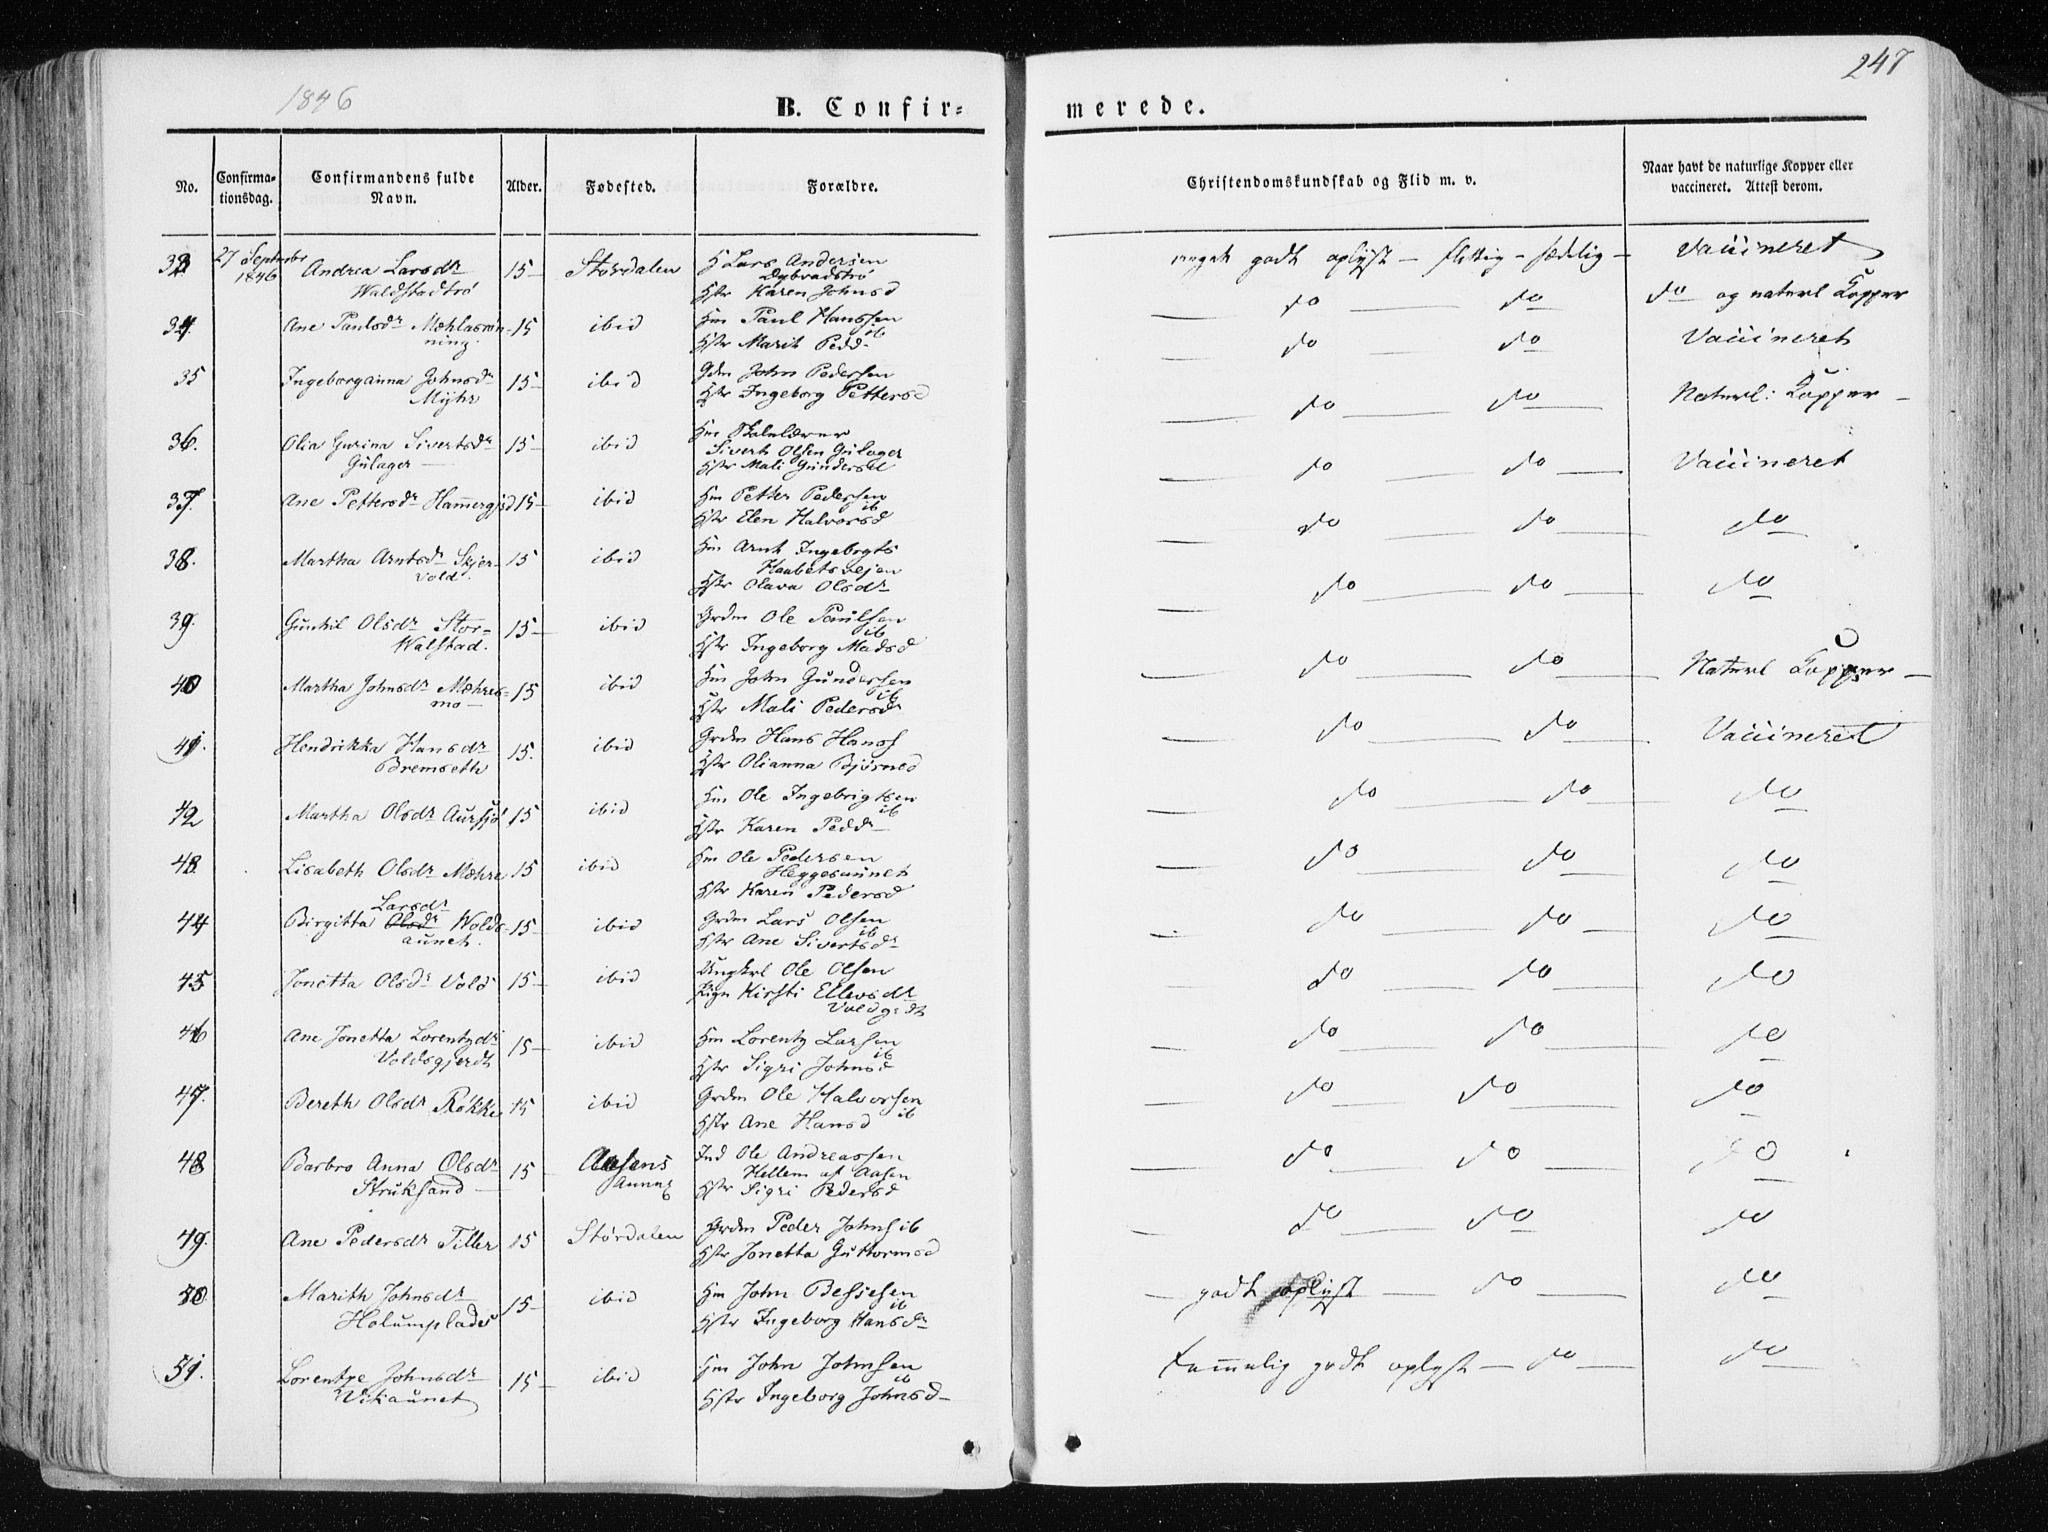 1846
247
B. Confir=
merede.
No.
Confirma-
tionsdag.
Confirmandens fulde
Navn.
Alder.
Fødested.
Forældre.
Christendomskundskab og Flid m. v.
Naar havt de naturlige Kopper eller
vaccineret. Attest derom.
33 27 September 1846 Andrea Larsdr 15- Størdalen H Lars Andersen meget godt oplyst - flittig - sædelig - Vaccineret
Waldstadtrø
Hstr Karen Johnsd
34 Ane Paulsdr Mæhlasrøn- 15 ibid Hm Paul Hanssen do do do og naturl Kopper
ning. ib
Hstr Marit Pedd
35 Ingeborganna Johnsdr 15- ibid Gdm John Pedersen do do Vaccineret
Myhr Hstr Ingeborg Pettersd
36. Olia Gurina Sivertsdr 15- ibid Hm Skolelærer do do Naturl: Kopper -
Gulager Sivert Olsen Gulager
Hstr Mali Gundersd
37. Ane Pettersdr 15- ibid Hm Petter Pedersen do do Vaccineret
ib
Hstr Elen Halvorsd
38. Martha Arntsdr Skjer- 15 ibid Hm Arnt Ingebrgts do do do
vold.
Hstr Olava Olsdr
39. Gunhil Olsdr Stor- 15- ibid Grdm Ole Paulsen do do do
Walstad. ib
Hstr Ingeborg Madsd
40 Martha Johnsdr Mæhres- 15 ibid Hm John Gundersen do do Naturl Kopper -
mo - ib
Hstr Mali Pedersdr
41. Hendrikka Hansdr 15. ibid Grdm Hans Hansf do do Vaccineret
Bremseth Hstr Olianna Bjørnsd
42 Martha Olsdr Aursjø 15 ibid Hm Ole Ingebrigtsen do do do
ib
Hstr Karen Peddr
43. Lisabeth Olsdr Mæhre 15 ibid Hm Ole Pedersen do do do
Heggesaunet
Hstr Karen Pedersd
Larsdr
44 Birgitta Olsdr Wolds- 15- ibid Grdm Lars Olsen do do do
aunet. ib
Hstr Ane Sivertsdr
45 Jonetta Olsdr Vold 15- ibid Ungkrl Ole Olsen do do do
Pige Kirsti Ellevsdr
46 Ane Jonetta Lorentzdr 15- ibid Hm Lorentz Larsen do do do
Voldsgjerdt ib
Hstr Sigri Johnsd
47. Bereth Olsdr Røkke 15 ibid Grdm Ole Halvorsen do do do
ib
Hstr Ane Hansd
48 Barbro Anna Olsdr 15- Aasens Ind Ole Andreassen do do do
Struksand Annx Hellem af Aasen
Hstr Sigri Pedersd
49. Ane Pedersdr Tiller 15 Størdalen Grdm Peder Johns ib do do do
Hstr Jonetta Guttormsd
50 Marith Johnsdr 15- ibid Hm John Bessesen - godt oplyst - do do
Holumplads ib
Hstr Ingeborg Hansdr
51. Lorentze Johnsdr 15- ibid Hm John Johnsen temmelig godt oplyst - do - do
Vikaunet ib
Hstr Ingeborg Johnsd-